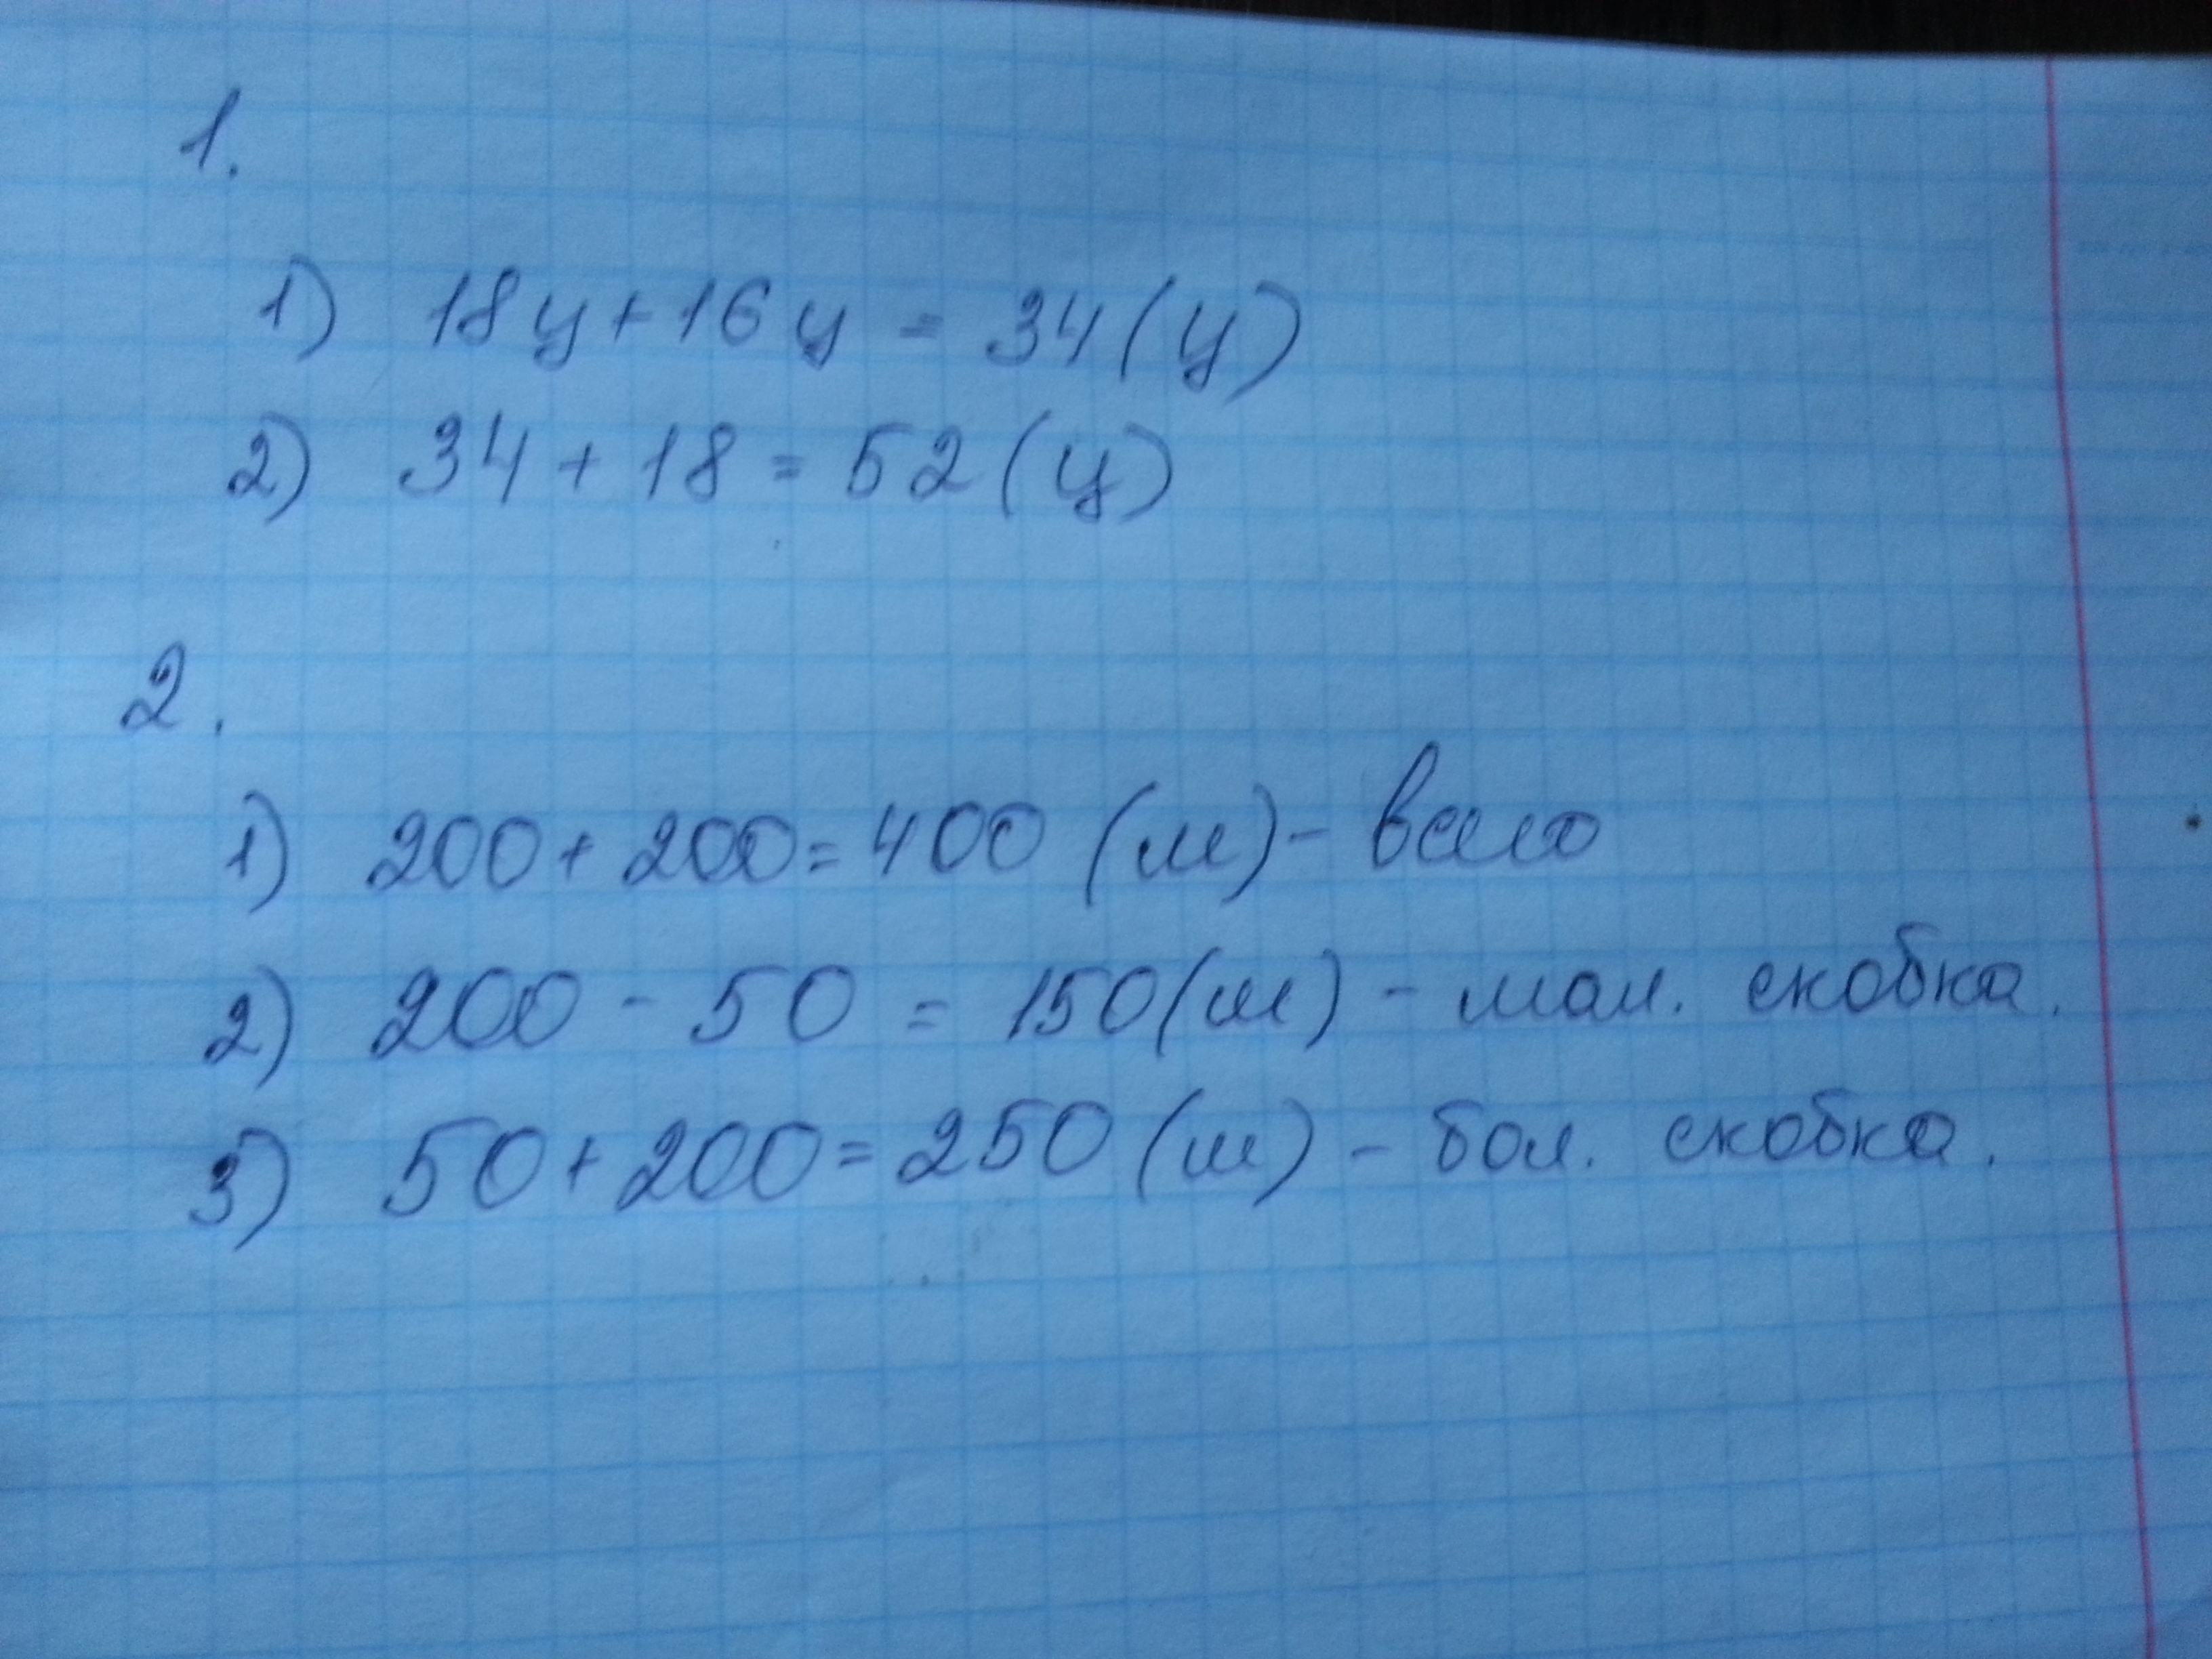 1.
1) 18ц+16ц = 34(ц)
2) 34+18=52(ц)
2.
1) 200+200=400 (м)- всего
2) 200-50 = 150(м) - мал. скобка.
3) 50+200=250 (м) - бол. скобка.